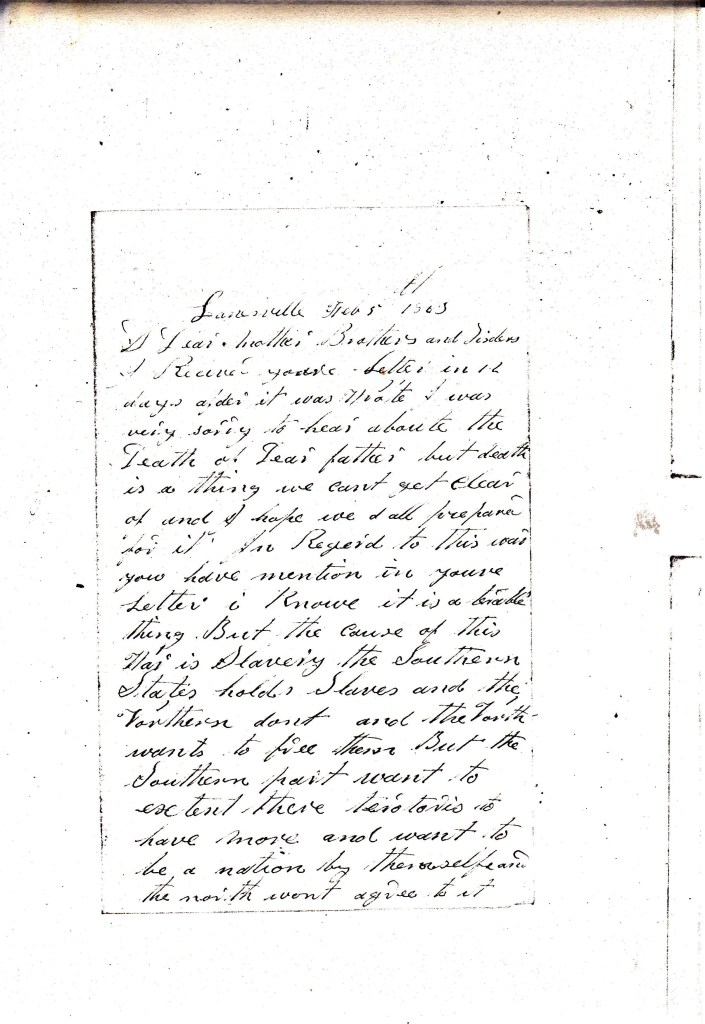 H
Lanesville Feb 5 1863
D Dear Mother Brothers and Sisders
I Receive youre Letter in 12
days afder it was Wrote I was
very sorry to hear aboute the
Death of Dear father but death
is a thing we cant get Clear
of and I hope we all prepare
for it In Regerd to this war
yow have mention in youre
Letter i Knowe it is a terable
thing But the cause of this
War is Slavery the Southern
States holds Slaves and the
Northern dont and the North
wants to free them But the
Southern part want to
extent there terotoris to
have more and want to
be a nation by themselfe and
the north wont agree to it